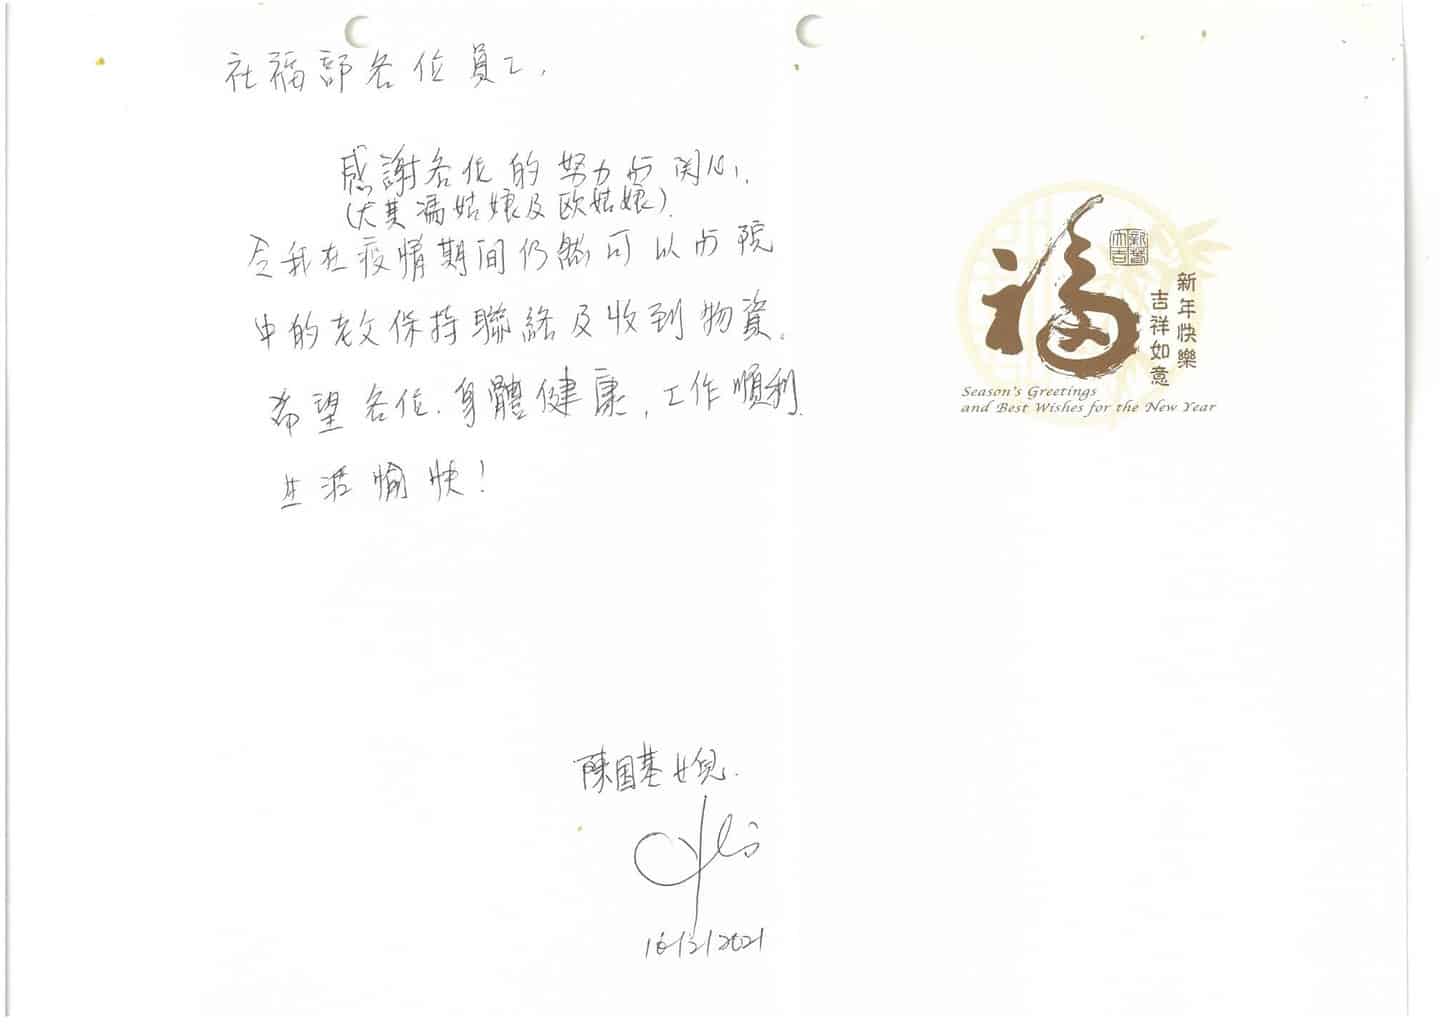 社福部各位員工,
感謝各位的努力与関心,
(尤其馮姑娘及歐姑娘)
令我在疫情期间仍然可以与院
中的老父保持聯絡及收到物資。
希望各位,身體健康,工作順利,
生活愉快!
陳国基女兒
16/2/2021
福
新春
大吉
新年快樂
吉祥如意
Season's Greetings
and Best Wishes for the New Year